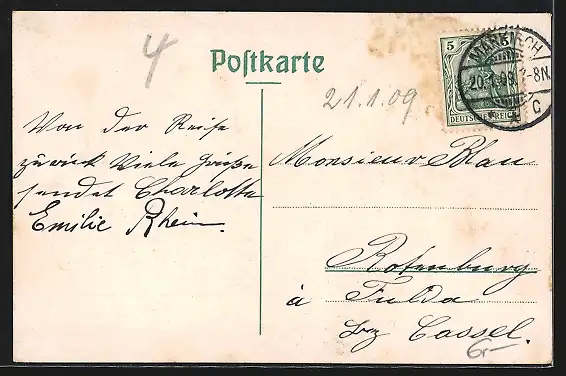 4
Postkarte
21.1.09.
5 5
MARKIRCH
20.1.09. 7-8N.
* C
DEUTSCHES REICH
Von der Reise
zurück Viele Grüße
sendet Charlotte
Emilie Rhein.
Monsieur Blau
Rotenburg
à Fulda
bez Cassel.
6.-